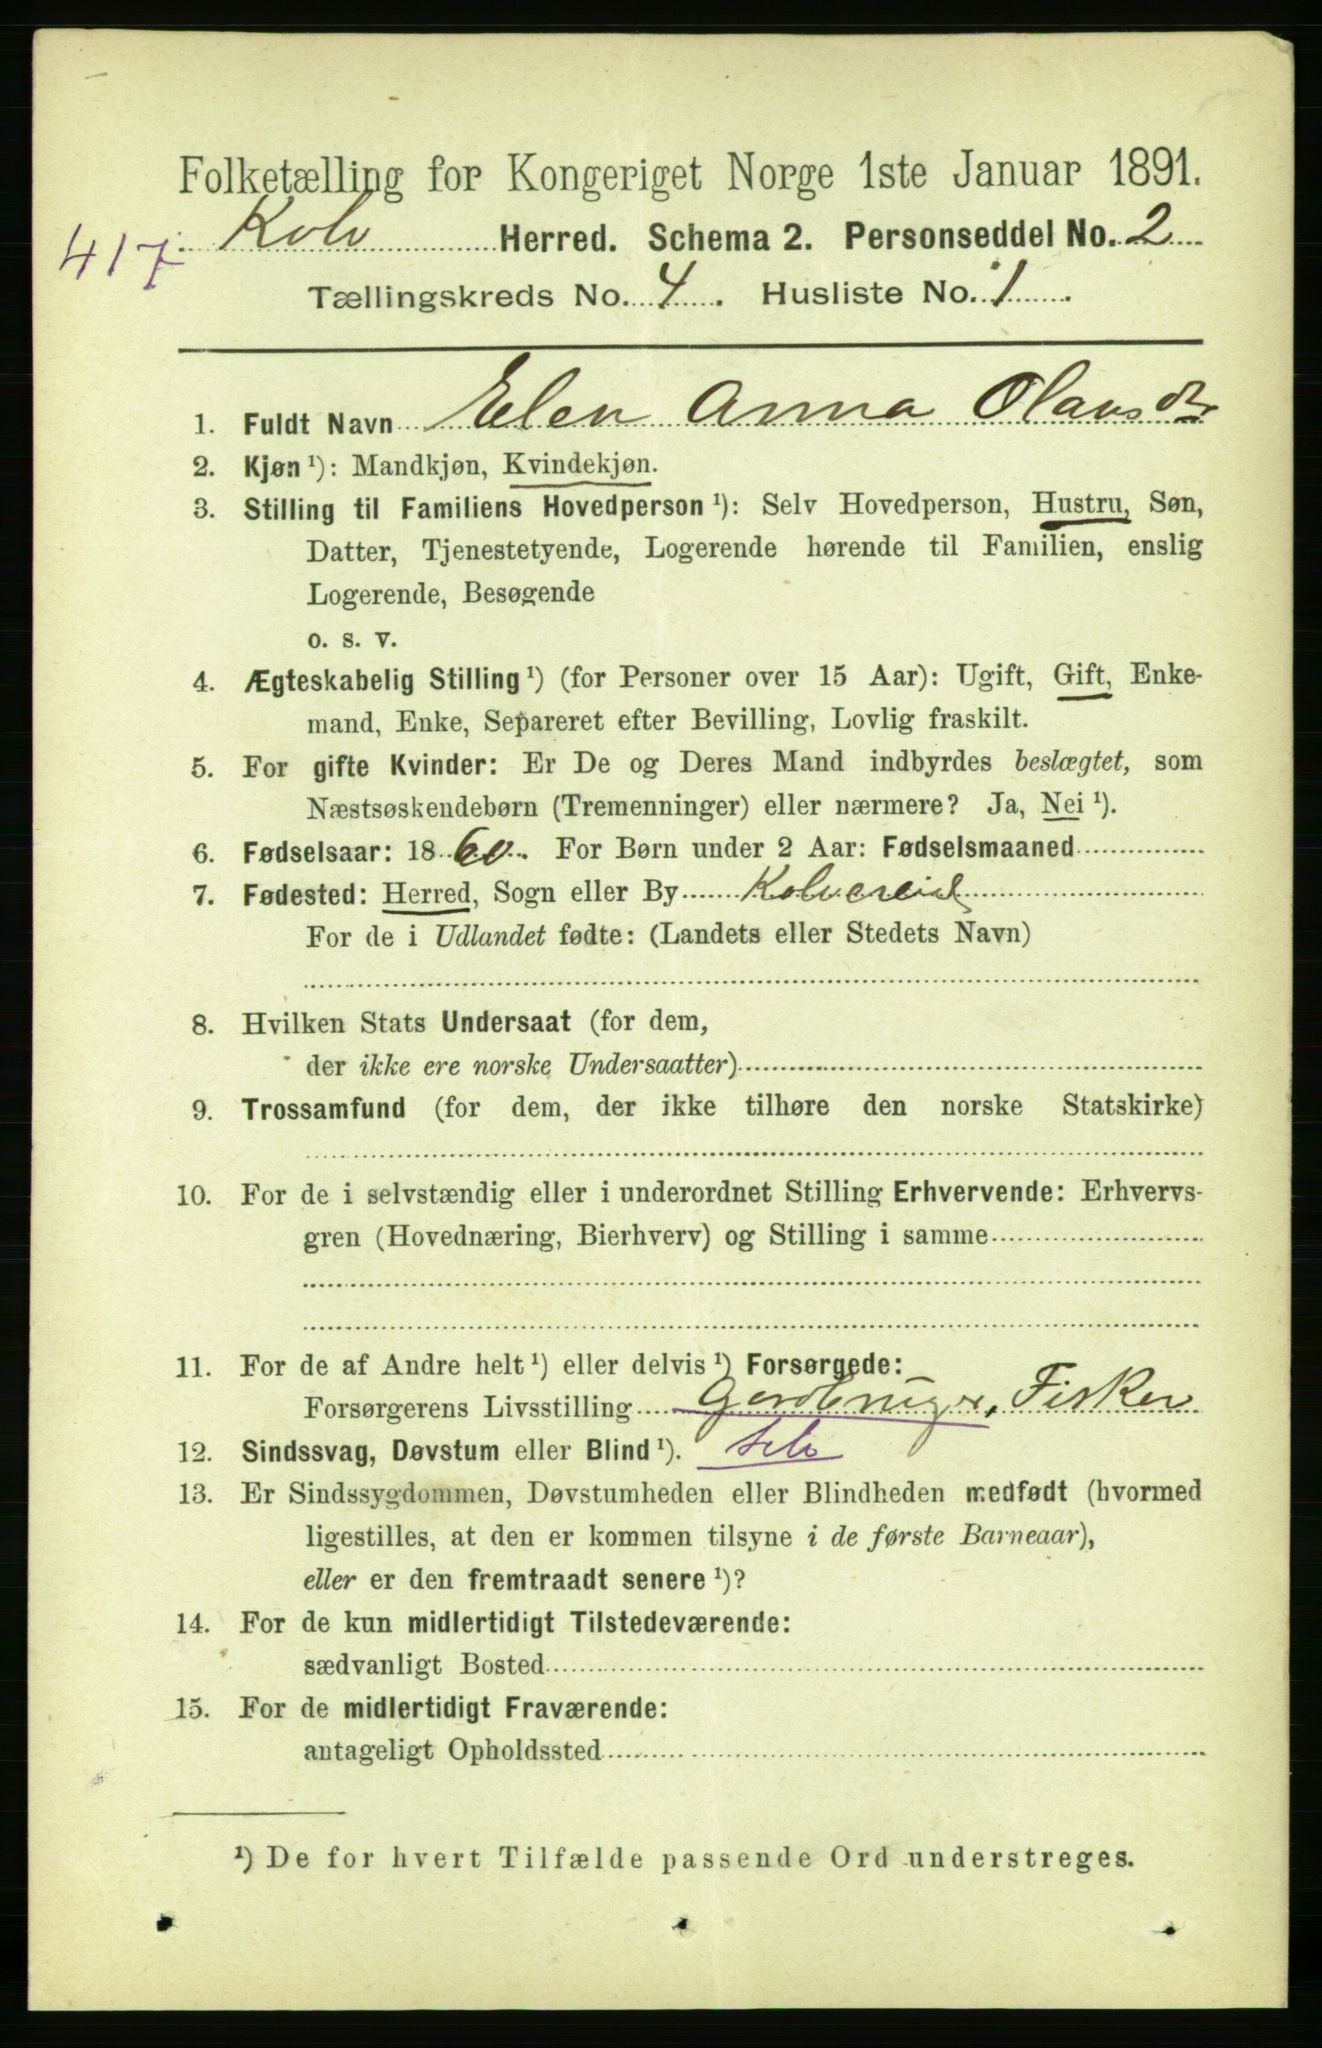 Folketælling for Kongeriget Norge 1ste Januar 1891.
417 Kolv Herred. Schema 2. Personseddel No. 2
Tællingskreds No. 4. Husliste No. 1.
1. Fuldt Navn Elen Anna Olausdr
2. Kjøn ¹): Mandkjøn, Kvindekjøn.
3. Stilling til Familiens Hovedperson ¹): Selv Hovedperson, Hustru, Søn,
Datter, Tjenestetyende, Logerende hørende til Familien, enslig
Logerende, Besøgende
o. s. v.
4. Ægteskabelig Stilling ¹) (for Personer over 15 Aar): Ugift, Gift, Enke-
mand, Enke, Separeret efter Bevilling, Lovlig fraskilt.
5. For gifte Kvinder: Er De og Deres Mand indbyrdes beslægtet, som
Næstsøskendebørn (Tremenninger) eller nærmere? Ja, Nei ¹).
6. Fødselsaar: 1860. For Børn under 2 Aar: Fødselsmaaned
7. Fødested: Herred, Sogn eller By Kolvereid
For de i Udlandet fødte: (Landets eller Stedets Navn)
8. Hvilken Stats Undersaat (for dem,
der ikke ere norske Undersaatter)
9. Trossamfund (for dem, der ikke tilhøre den norske Statskirke)
10. For de i selvstændig eller i underordnet Stilling Erhvervende: Erhvervs-
gren (Hovednæring, Bierhverv) og Stilling i samme
11. For de af Andre helt ¹) eller delvis ¹) Forsørgede:
Forsørgerens Livsstilling Gardbruger, Fisker
12. Sindssvag, Døvstum eller Blind ¹). Selv
13. Er Sindssygdommen, Døvstumheden eller Blindheden medfødt (hvormed
ligestilles, at den er kommen tilsyne i de første Barneaar),
eller er den fremtraadt senere ¹)?
14. For de kun midlertidigt Tilstedeværende:
sædvanligt Bosted
15. For de midlertidigt Fraværende:
antageligt Opholdssted
¹) De for hvert Tilfælde passende Ord understreges.